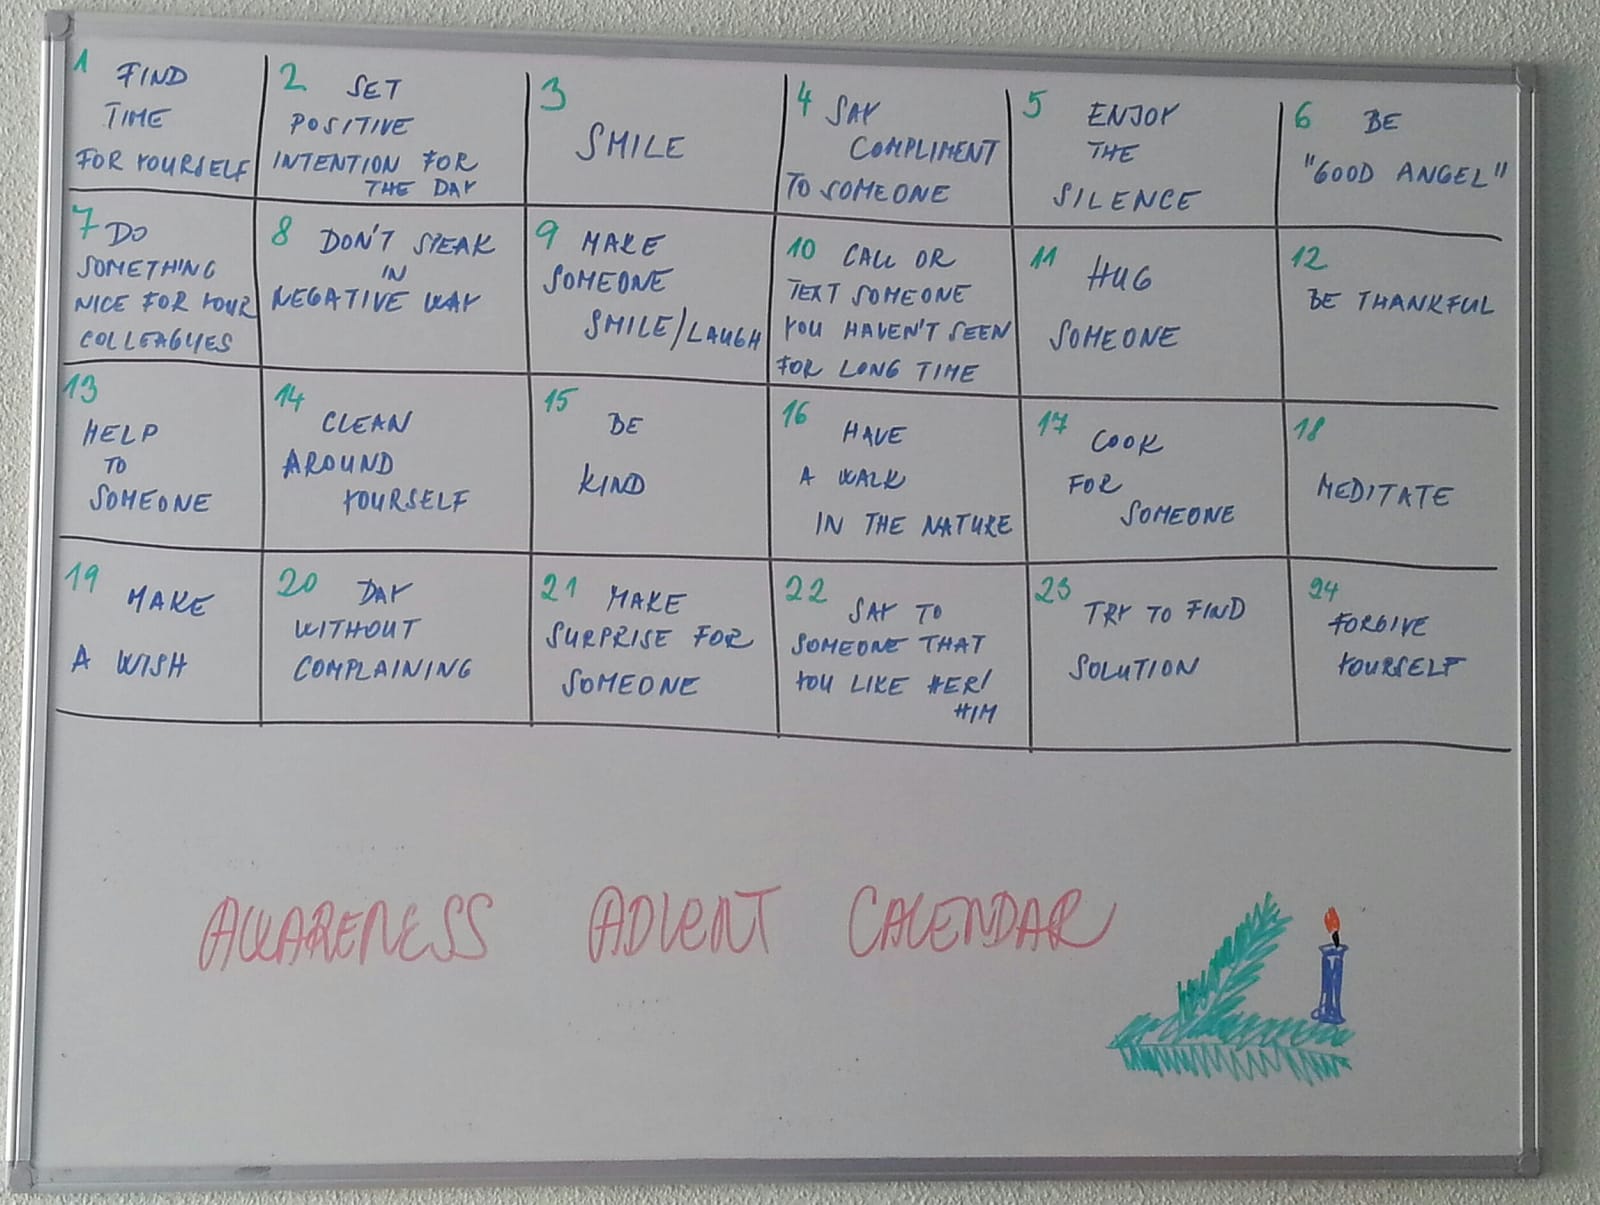 1 FIND
TIME
FOR YOURSELF
2 SET
POSITIVE
INTENTION FOR
THE DAY
3
SMILE
4 SAY
COMPLIMENT
TO SOMEONE
5 ENJOY
THE
SILENCE
6 BE
"GOOD ANGEL"
7 DO
SOMETHING
NICE FOR YOUR
COLLEAGUES
8 DON'T SPEAK
IN
NEGATIVE WAY
9 MAKE
SOMEONE
SMILE/LAUGH
10 CALL OR
TEXT SOMEONE
YOU HAVEN'T SEEN
FOR LONG TIME
11 HUG
SOMEONE
12
BE THANKFUL
13
HELP
TO
SOMEONE
14 CLEAN
AROUND
YOURSELF
15 BE
KIND
16 HAVE
A WALK
IN THE NATURE
17 COOK
FOR
SOMEONE
18
MEDITATE
19 MAKE
A WISH
20 DAY
WITHOUT
COMPLAINING
21 MAKE
SURPRISE FOR
SOMEONE
22 SAY TO
SOMEONE THAT
YOU LIKE HER/
HIM
23 TRY TO FIND
SOLUTION
24
FORGIVE
YOURSELF
AWARENESS ADVENT CALENDAR